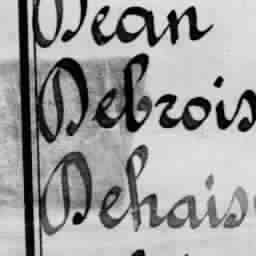 Dean
Debrois
Dehais